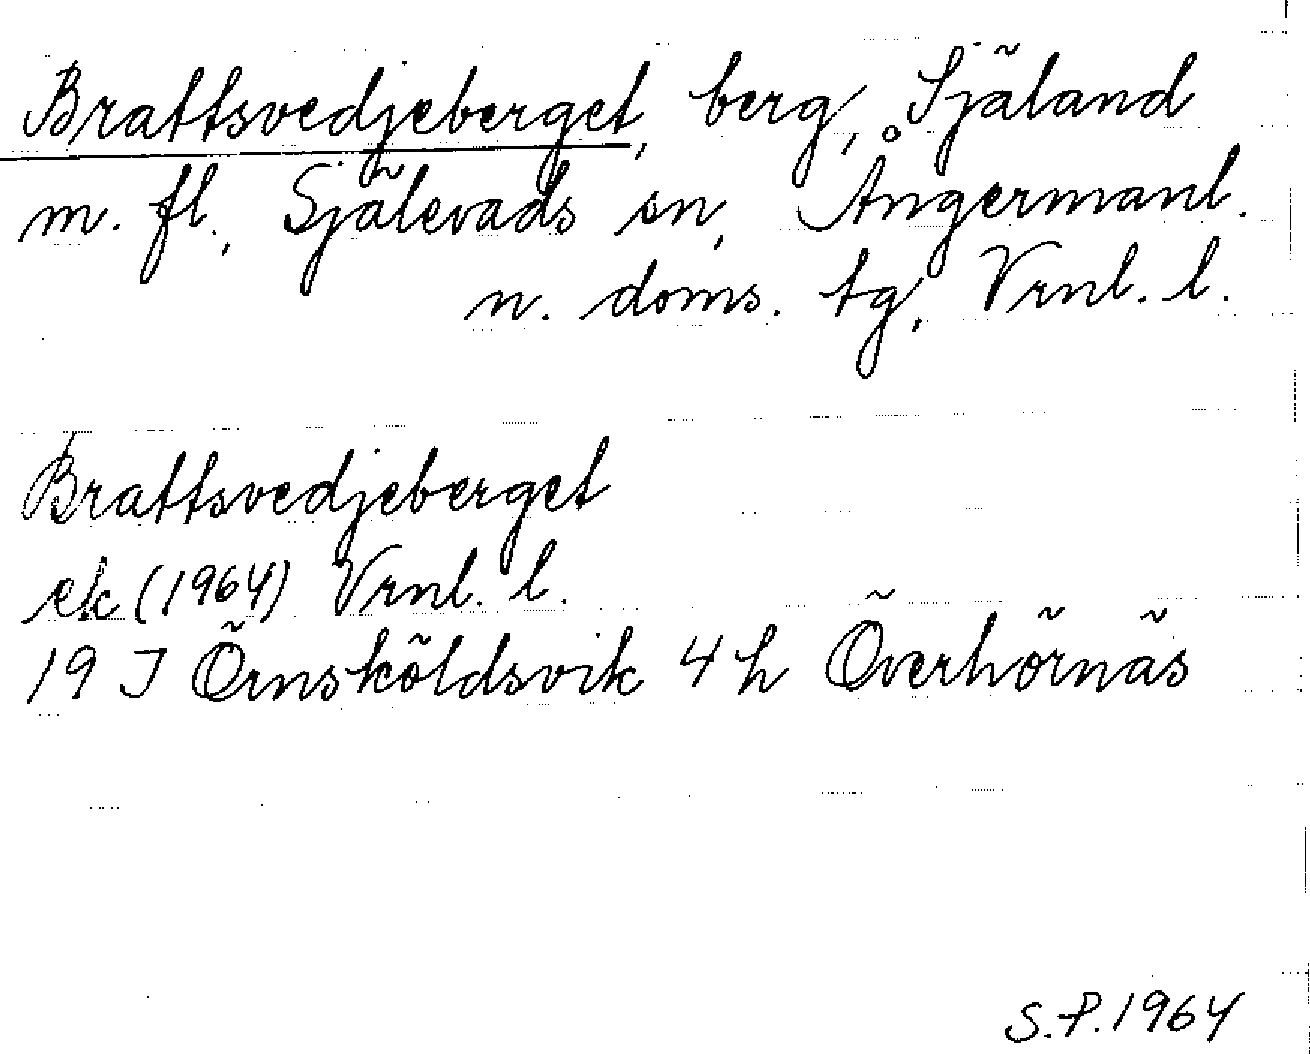 Brattsvedjeberget, berg, Själand
m. fl., Själevads sn, Ångermanl.
n. doms. tg, Vrnl. l.
Brattsvedjeberget
ek (1964) Vrnl. l.
19 J Örnsköldsvik 4 h Överhörnäs
S.P. 1964